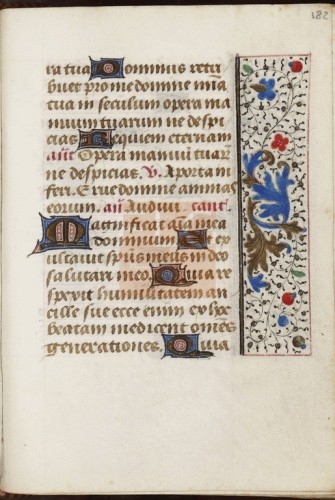 182
ra tua Dominus retri
buet pro me domine mia
tua in seculum opera ma
nuum tuarum ne despi
cias Requiem eternam
añ Opera manuũ tuaꝝ
ne despicias. V. A porta in
feri. Erue domine animas
eorum. añ Audivi cant'
Magnificat aĩa mea
dominum Et ex
ultavit sp̃us meus in deo
salutari meo. Quia re
spexit humilitatem an
cille sue ecce enim ex hoc
beatam me dicent om̃es
generationes. Quia